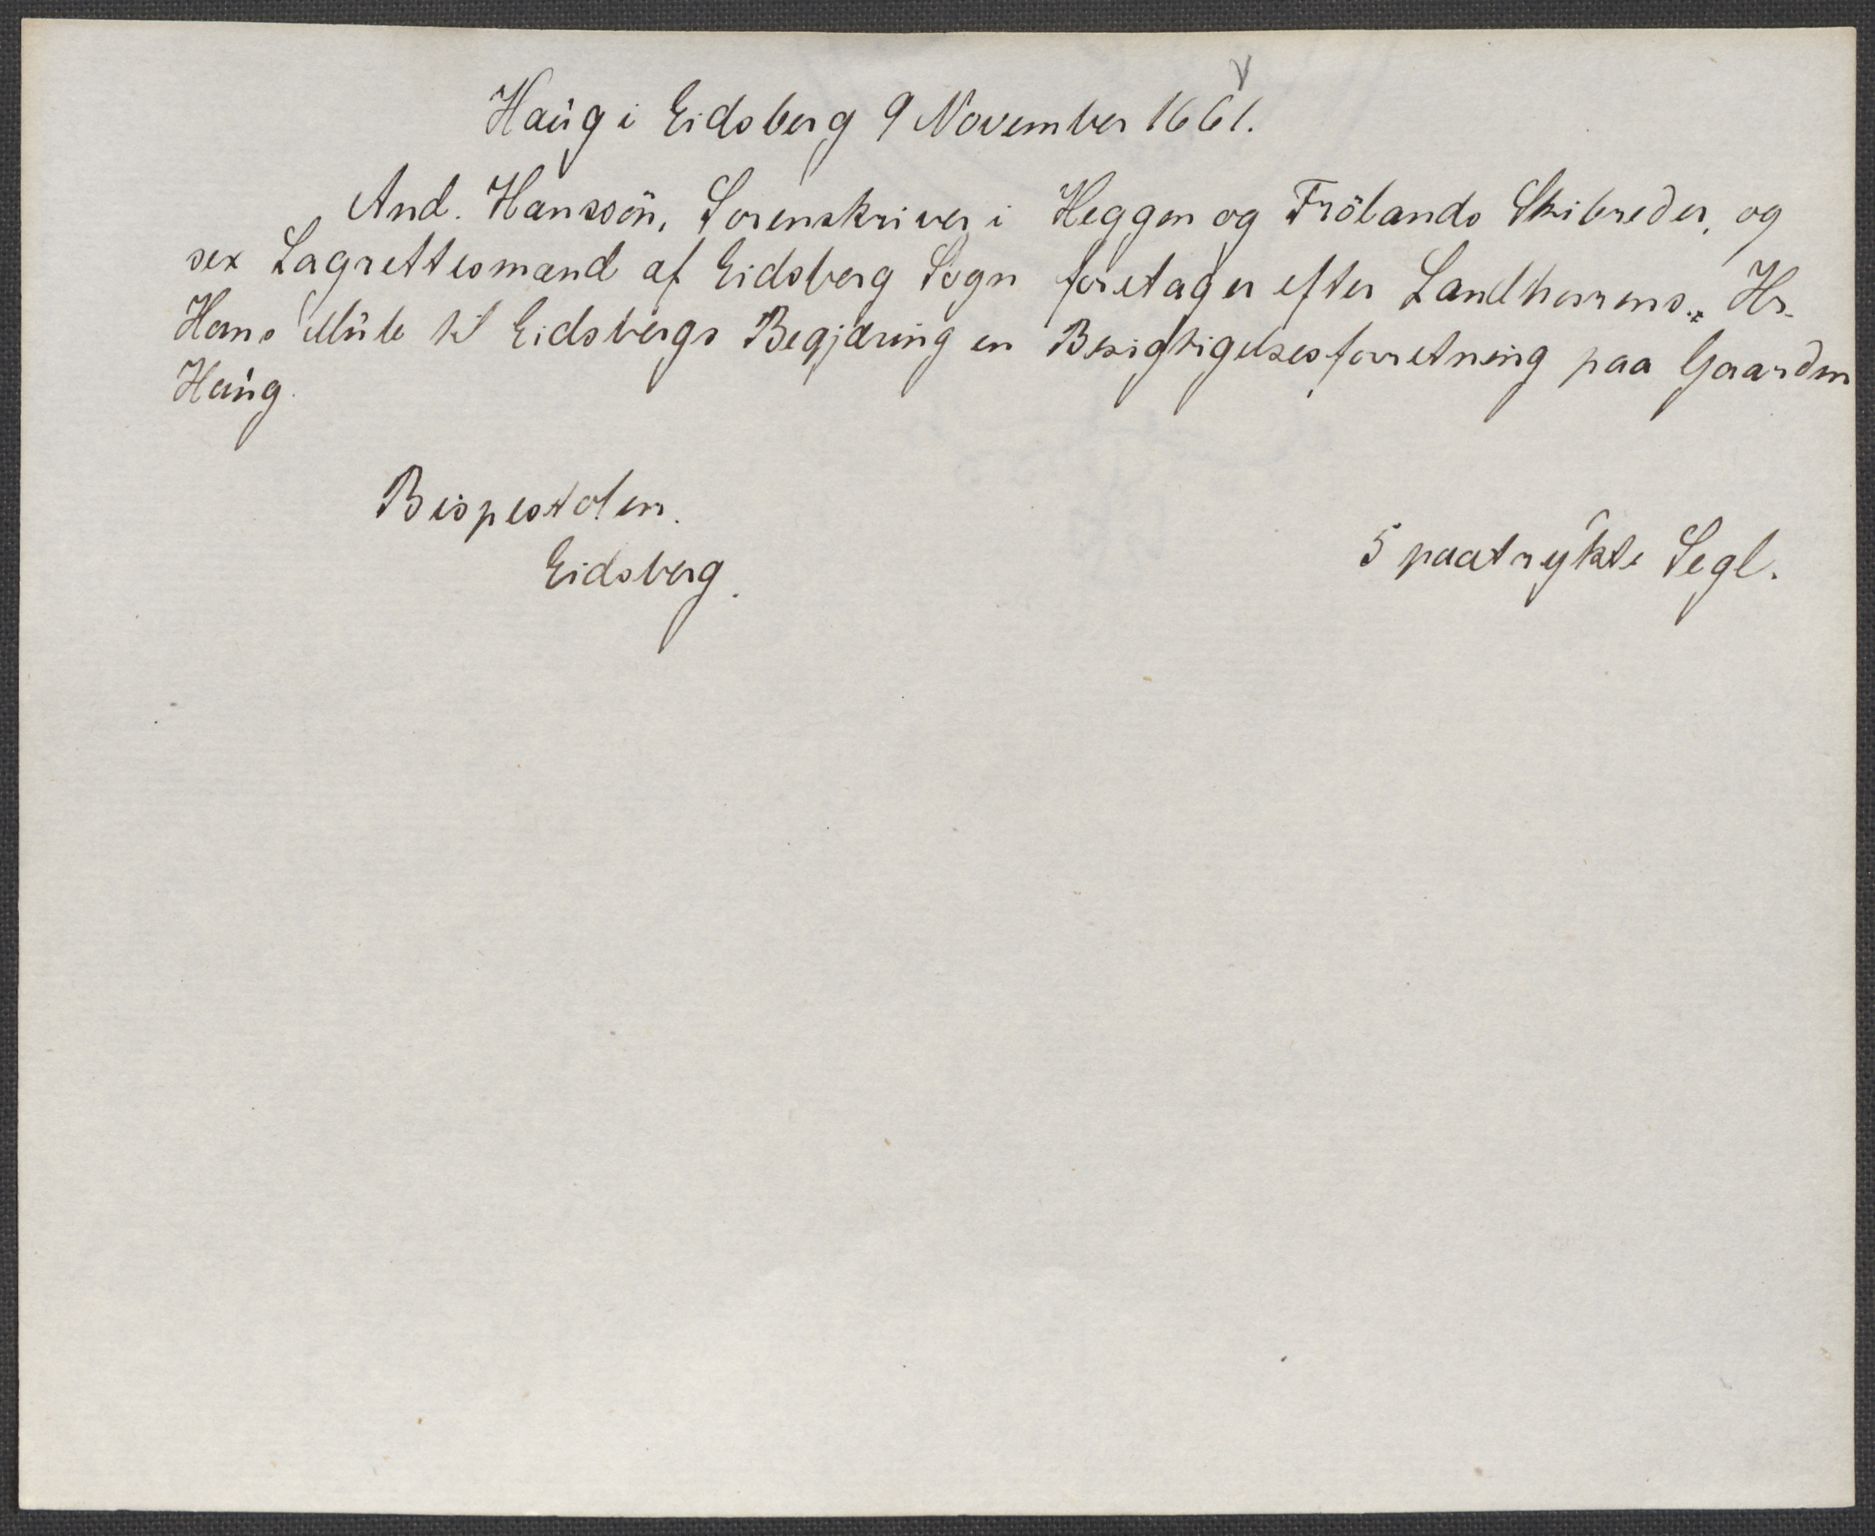 Haug i Eidsberg 9 November 1661.
And. Hanssön, Sorenskriver i Heggen og Frölands Skibreder, og
sex Lagrettesmænd af Eidsberg Sogn foretager efter Landherrens, Hr.
Hans Mule til Eidsbergs Begjæring en Besigtigelsesforretning paa Gaarden
Haug.
Bispestolen.
Eidsberg.
5 paatrykte Segl.